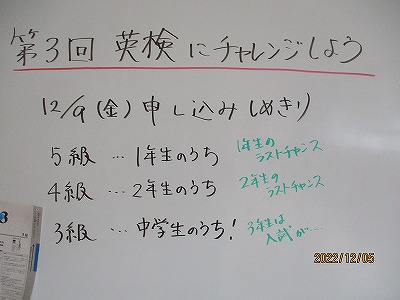 第3回 英検にチャレンジしよう
12/9(金)申し込みしめきり
5級…1年生のうち 1年生のラストチャンス
4級…2年生のうち 2年生のラストチャンス
3級…中学生のうち! 3年生は入試が…
2022/12/05